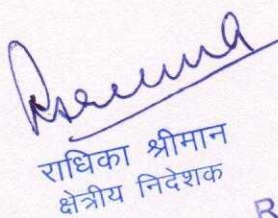 राधिका श्रीमान
क्षेत्रीय निदेशक
R